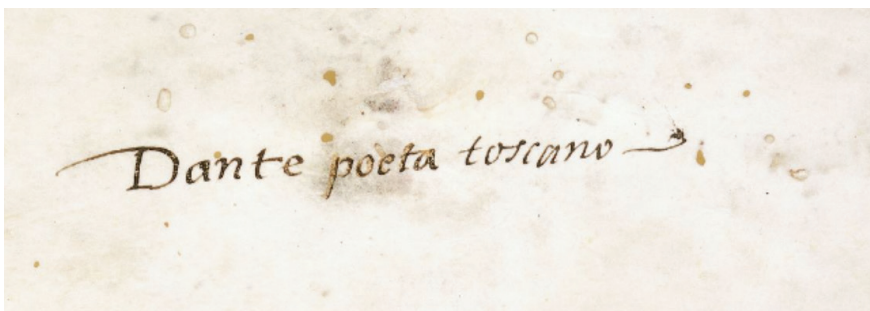 Dante poeta toscano